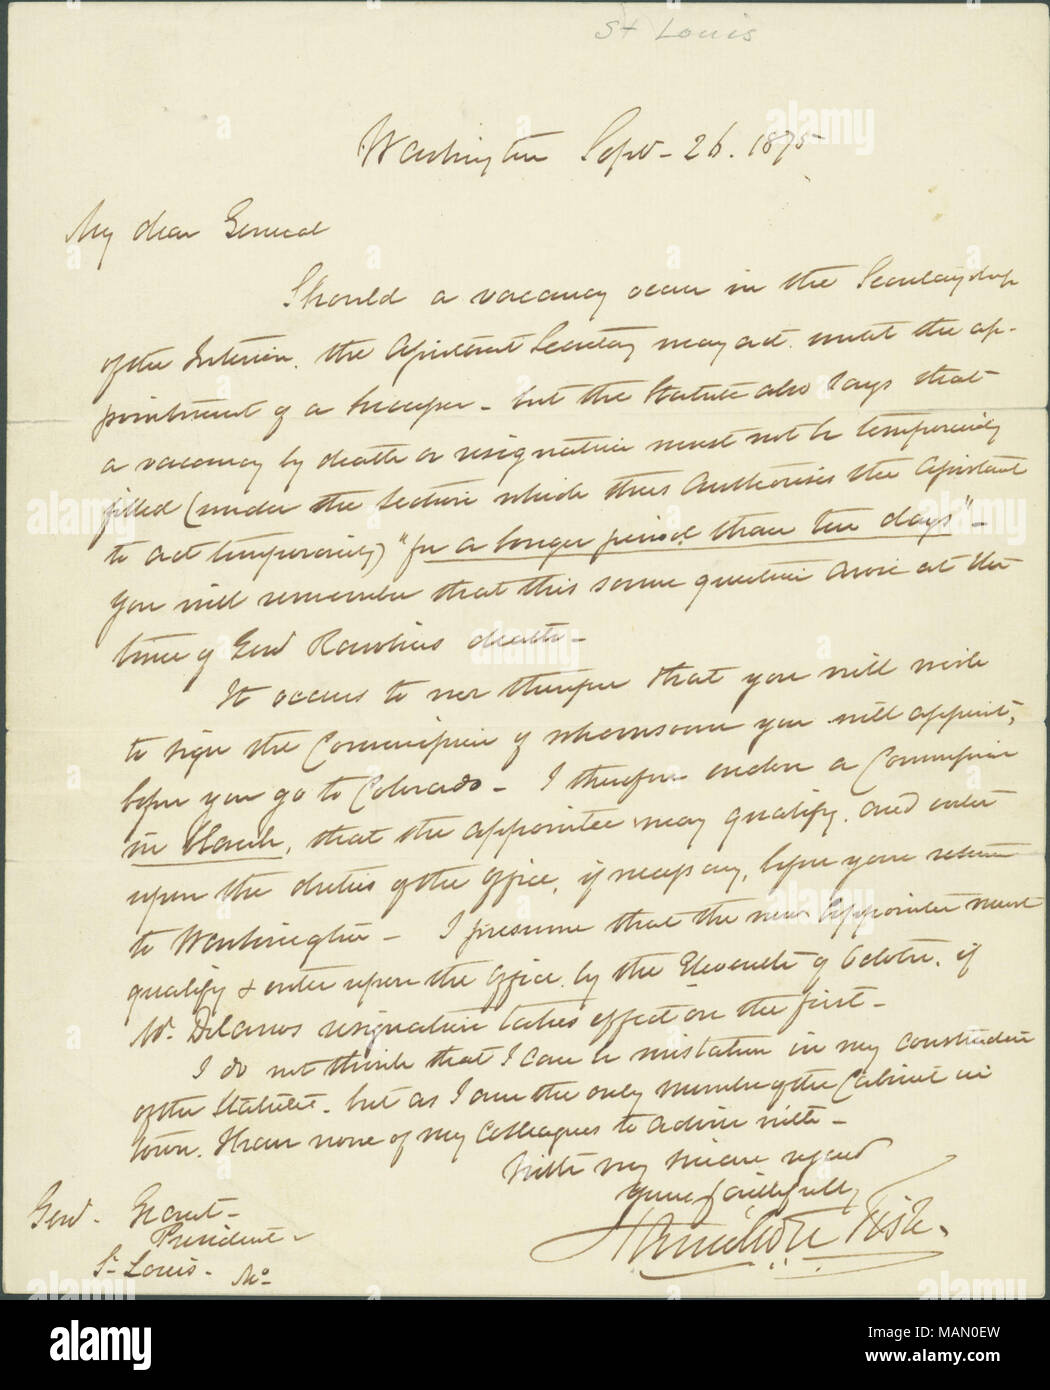 St Louis
Washington Sept- 26. 1875
My dear General
Should a vacancy occur in the Secretaryship
of the Interior, the Assistant Secretary may act until the ap-
pointment of a Successor - but the Statute also says that
a vacancy by death or resignation must not be temporarily
filled (under the Section which thus Authorises the Assistant
to act temporarily) "for a longer period than ten days" -
You will remember that this same question arose at the
time of Genl Rawlins death -
It occurs to me therefore that you will wish
to sign the Commission of whomsoever you will appoint,
before you go to Colorado - I therefore enclose a Commission
in blank, that the appointee may qualify, and enter
upon the duties of the Office, if necessary, before your return
to Washington - I presume that the new Appointee must
qualify & enter upon the Office, by the Eleventh of October, if
Mr. Delanos resignation takes effect on the first -
I do not think that I can be mistaken in my construction
of the Statute - but as I am the only member of the Cabinet in
town, I have none of my Colleagues to advise with -
With my sincere regard
Yours faithfully
Hamilton Fish
Genl. Grant -
President -
St Louis - Mo
alamy
Image ID: MAN0EW
www.alamy.com